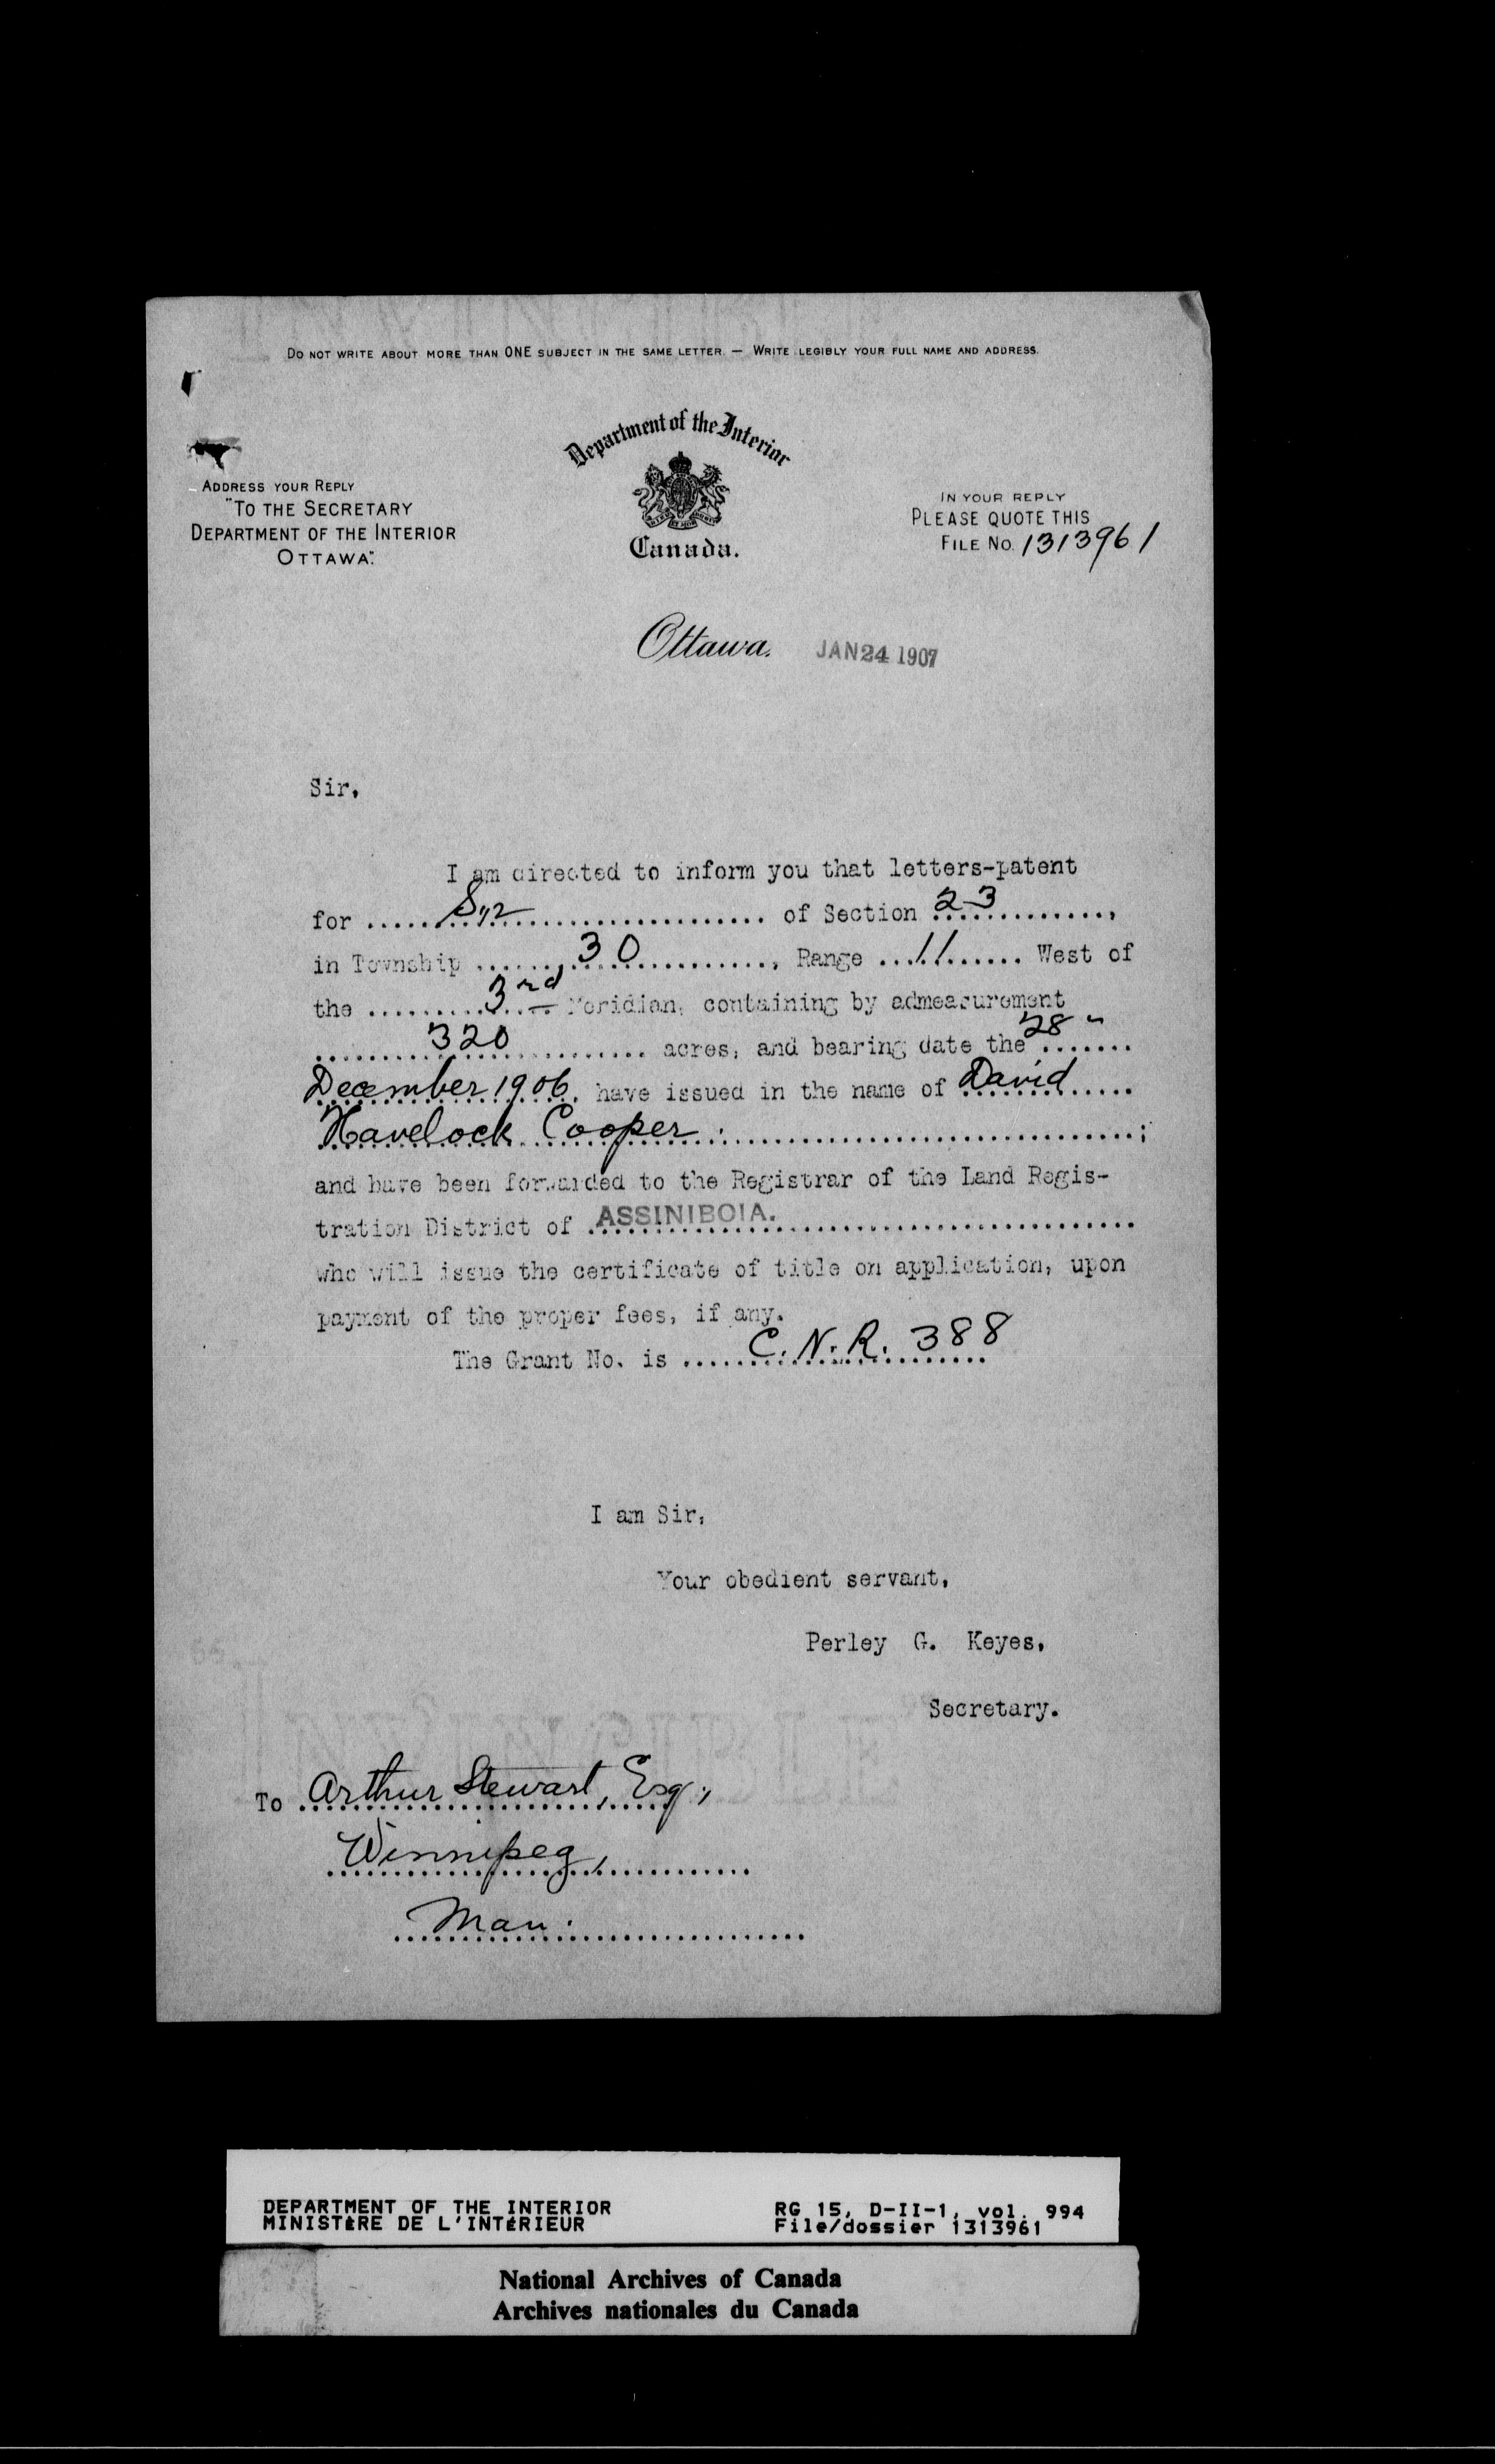 DO NOT WRITE ABOUT MORE THAN ONE SUBJECT IN THE SAME LETTER. — WRITE LEGIBLY YOUR FULL NAME AND ADDRESS.
Department of the Interior
Canada.
ADDRESS YOUR REPLY
"TO THE SECRETARY
DEPARTMENT OF THE INTERIOR
OTTAWA."
IN YOUR REPLY
PLEASE QUOTE THIS
FILE NO. 1313961
Ottawa. JAN 24 1907
Sir,
I am directed to inform you that letters-patent
for ..... S 1/2 ..... of Section 23 .....,
in Township ..... 30 ....., Range ... 11 ..... West of
the ..... 3rd Meridian, containing by admeasurement
..... 320 ..... acres, and bearing date the 28" .....
December 1906, have issued in the name of David .....
Havelock Cooper .....;
and have been forwarded to the Registrar of the Land Regis-
tration District of ASSINIBOIA. .....
who will issue the certificate of title on application, upon
payment of the proper fees, if any.
The Grant No. is ..... C.N.R. 388
I am Sir,
Your obedient servant,
Perley G. Keyes,
Secretary.
To Arthur Stewart, Esq.,
Winnipeg,
Man.
DEPARTMENT OF THE INTERIOR
MINISTÈRE DE L'INTÉRIEUR
RG 15, D-II-1, vol. 994
File/dossier 1313961
National Archives of Canada
Archives nationales du Canada